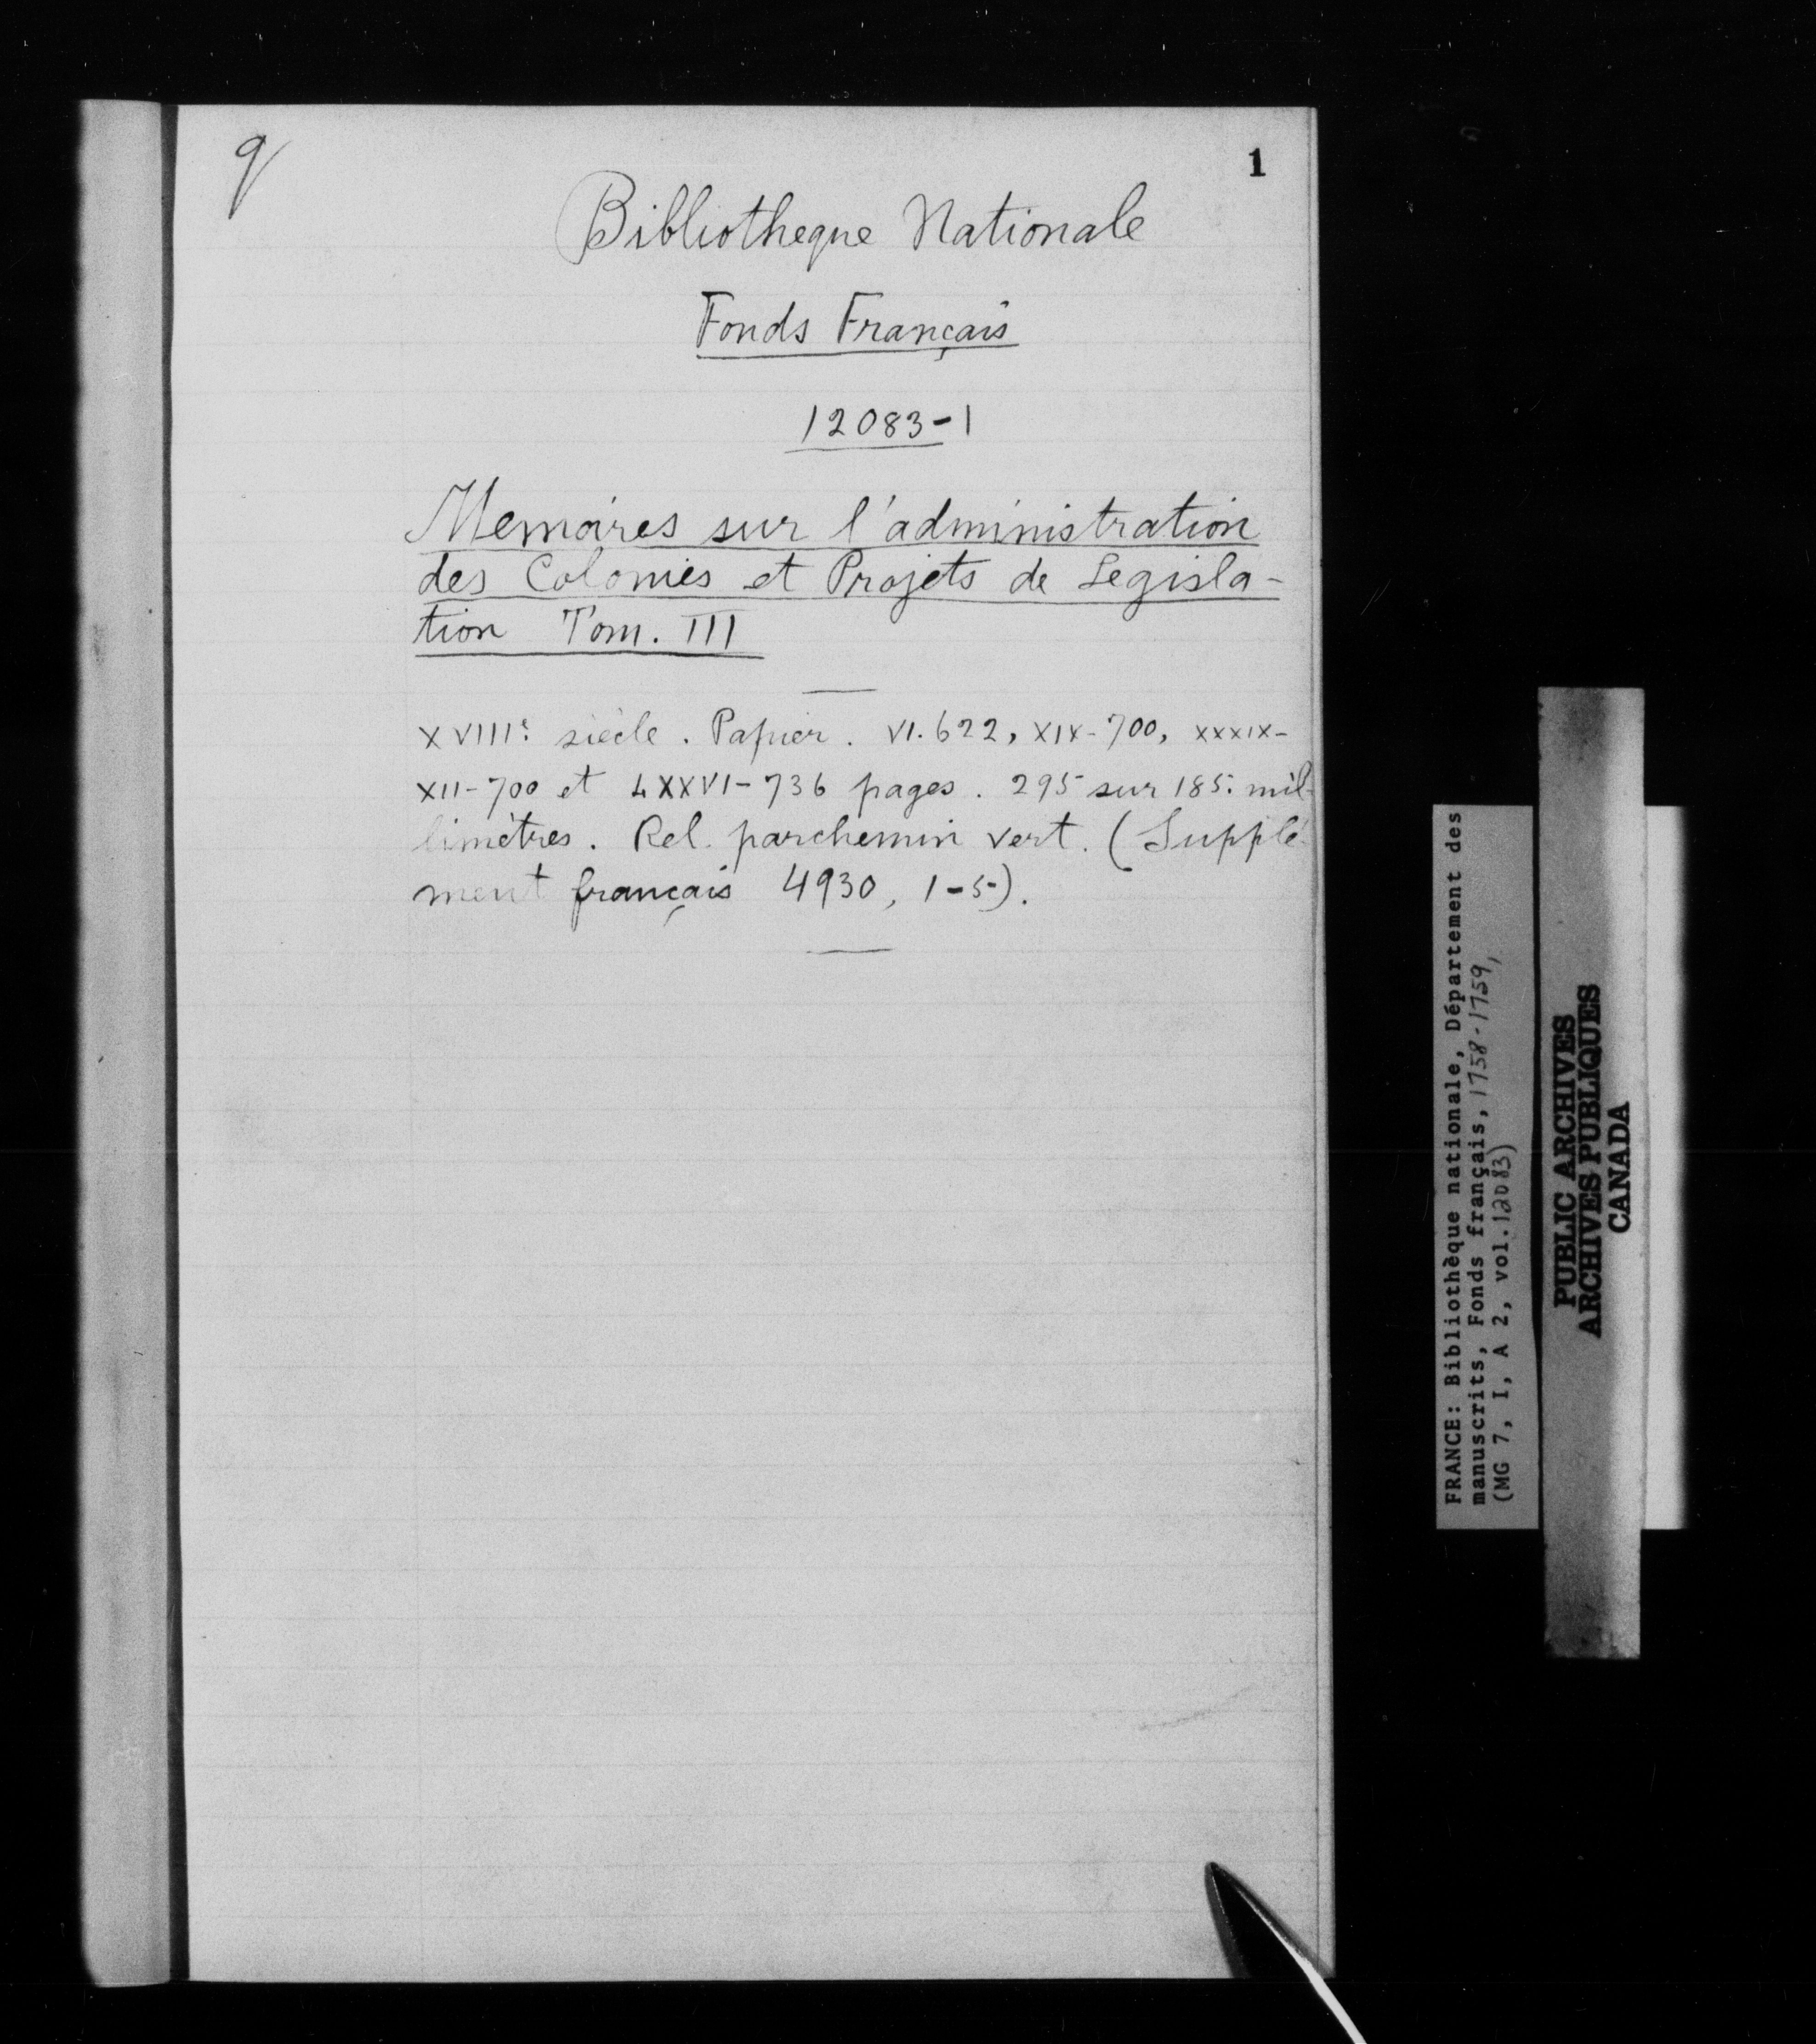 1
Bibliotheque Nationale
Fonds Français
12083-1
Memoires sur l'administration
des Colonies et Projets de Legisla-
tion Tom. III
XVIIIe siècle. Papier. VI. 622, XIX-700, XXXIX-
XII-700 et LXXVI-736 pages. 295 sur 185. mil-
limètres. Rel. parchemin vert. (Supplé-
ment français 4930, 1-5).
FRANCE: Bibliothèque nationale, Département des
manuscrits, Fonds français, 1758-1759,
(MG 7, I, A 2, vol. 12083)
PUBLIC ARCHIVES
ARCHIVES PUBLIQUES
CANADA